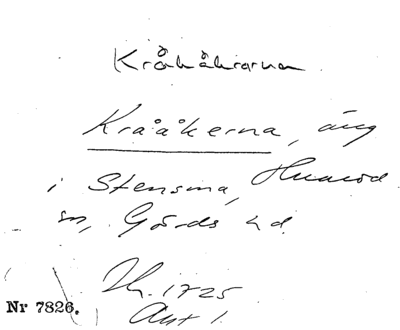 Kråkåkrarna
Kraåkerna, äng
i Stensma, Huarod
sn, Gärds hd.
Lh. 1725
Akt 1.
Nr 7826.